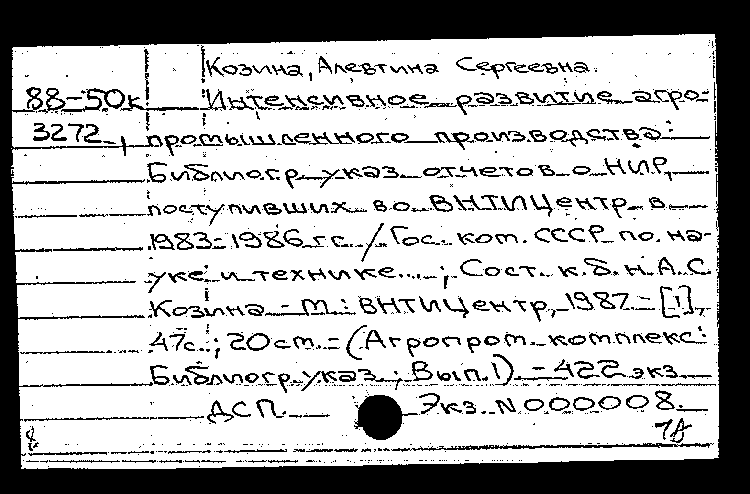 Козина, Алевтина Сергеевна.
88-50к Интенсивное развитие агро-
3272-, промышленного производства:
Библиогр. указ. отчетов о НИР,
поступивших во ВНТИЦентр в
1983-1986 гг. / Гос. ком. СССР по на-
уке и технике...; Сост. к.б.н. А.С.
Козина - М.: ВНТИЦентр, 1987 - [1],
47с.; 20 см. - (Агропром. комплекс:
Библиогр. указ.; Вып. 1). - 422 экз.
ДСП Экз. N 000008.